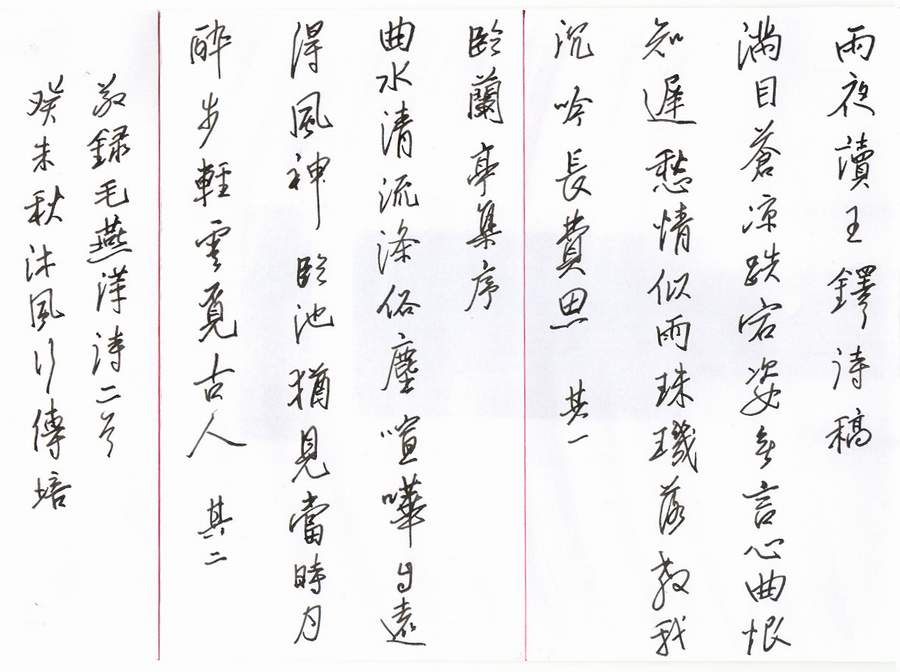 雨夜讀王鐸詩稿
滿目蒼凉跌宕姿無言心曲恨
知遲愁情似雨珠璣落教我
沉吟長費思 其一
臨蘭亭集序
曲水清流滌俗塵喧嘩自遠
得風神臨池猶見當時月
醉步輕雲覓古人 其二
敬錄毛燕萍詩二首
癸未秋沐風行傳培